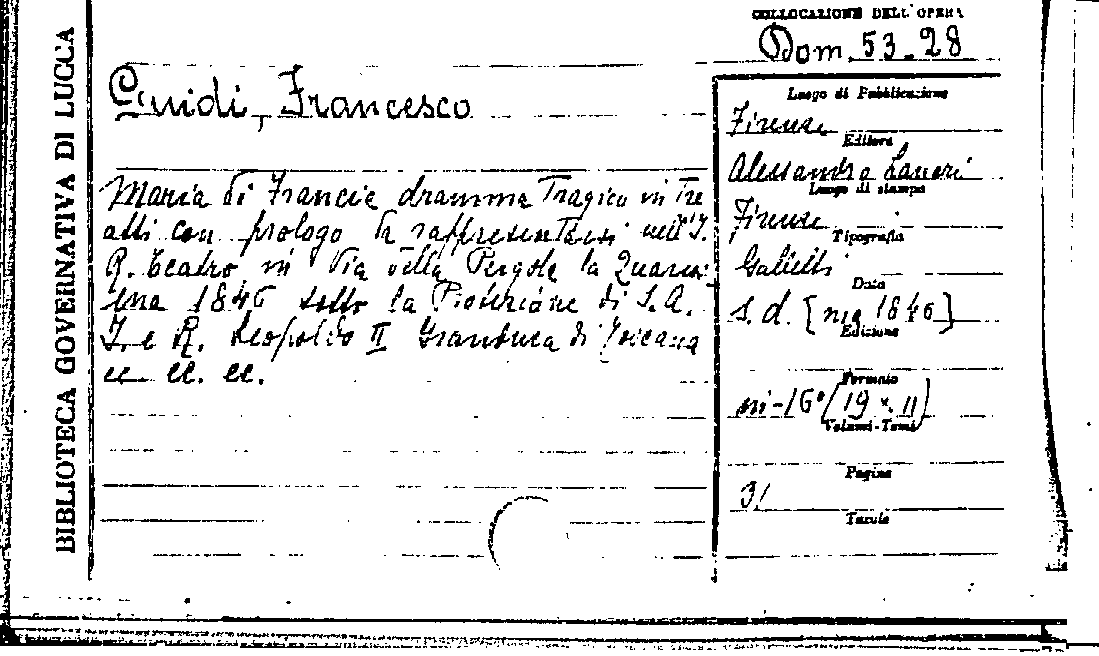 BIBLIOTECA GOVERNATIVA DI LUCCA
COLLOCAZIONE DELL'OPERA
Dom. 53-28
Guidi, Francesco
Maria di Francia dramma Tragico in Tre
atti con prologo da rappresentarsi nell'I.
R. Teatro in Via della Pergola la Quares-
ima 1846 sotto la Protezione di S.A.
I. e R. Leopoldo II Granduca di Toscana
ec. ec. ec.
Luogo di Pubblicazione
Firenze
Editore
Alessandro Lanari
Luogo di stampa
Firenze
Tipografia
Galletti
Data
s.d. [ma 1846]
Edizione
Formato
in-16° (19 x 11)
Volumi-Tomi
Pagine
31
Tavole